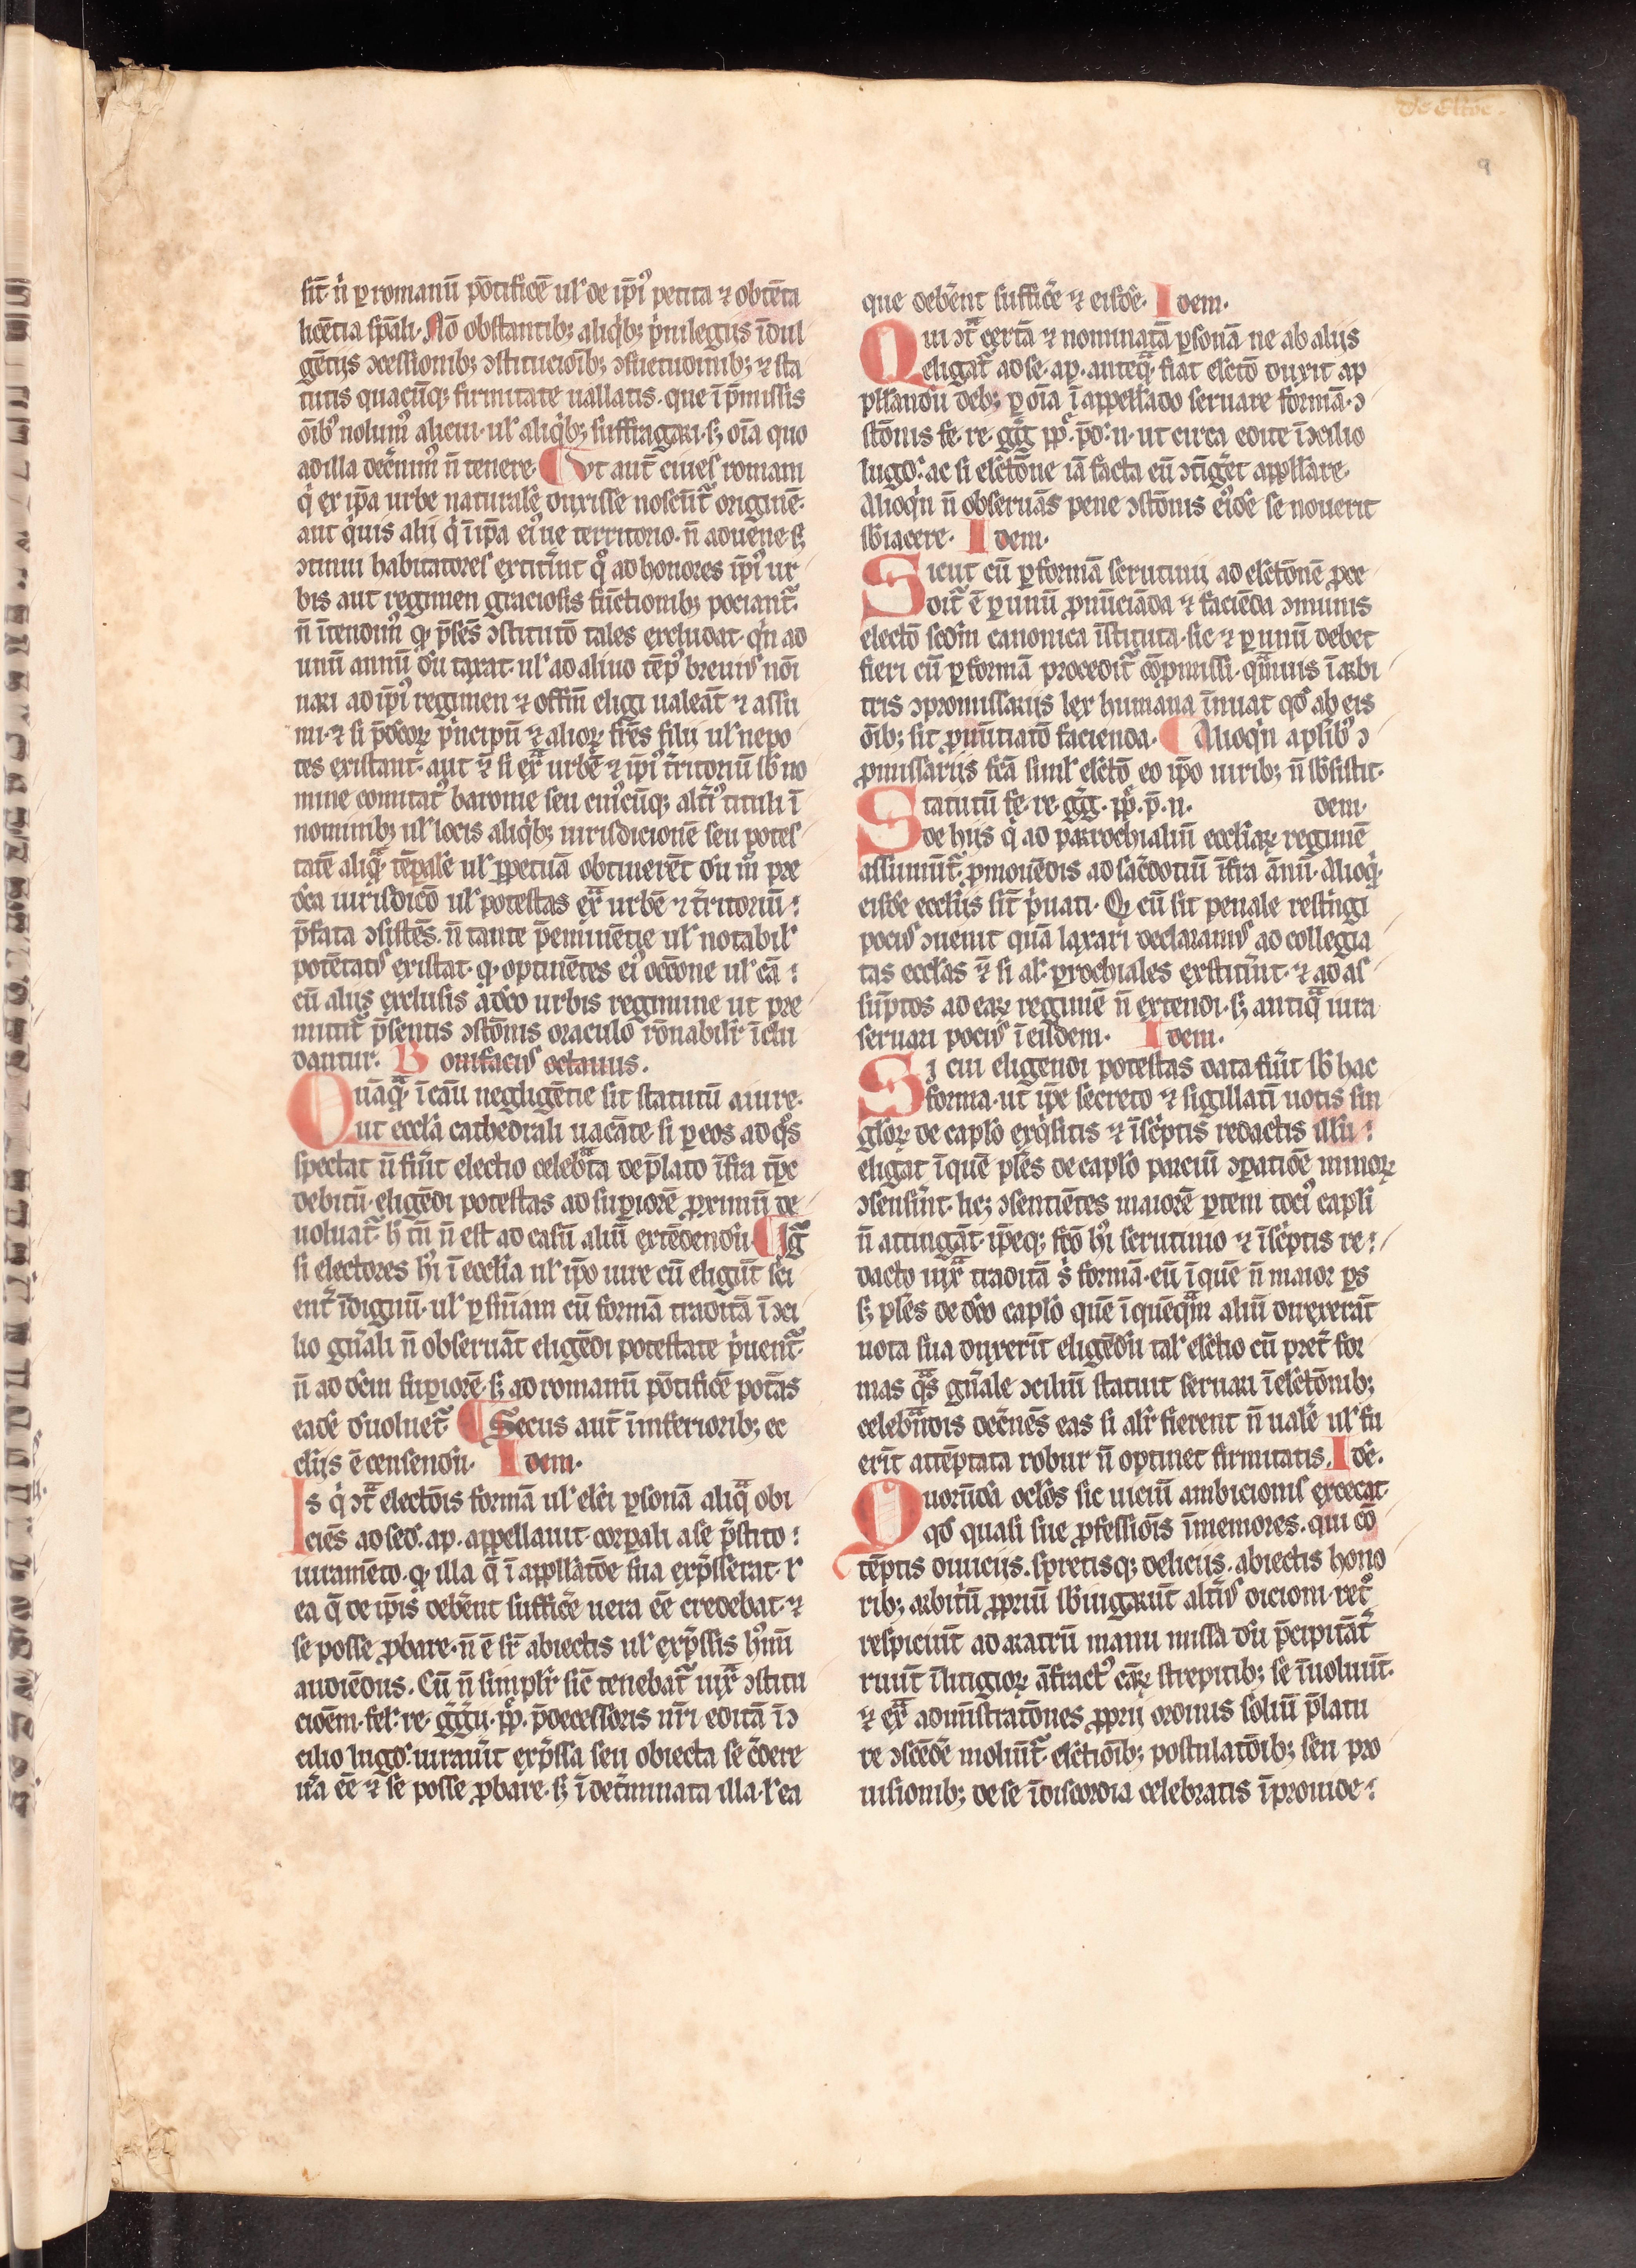 De Eltōe.
9
sīt· n̄ ꝑ romanū pōtificē ul' de ip̄i' petita ⁊ obtēta
licētia sp̄ali· Nō obstantib; aliq'b; p'uilegiis īdul
gētiis ↄcessionib; ↄstitucioīb; ↄsuetudinib; ⁊ sta
tutis quacūq; firmitate uallatis· que ī p̄missis
oīb' nolum' alicui· ul' aliq'b; suffragari· s; oīa quo
ad illa dec̄nim' n̄ tenere· Vt aut̄ ciues romani
q' ex ip̄a urbe naturalē duxisse noscūt᷑ originē·
aut q'uis alij q' ī ip̄a ei'ue territorio· n̄ aduēne s;
ↄtinui habitatores extit̄int qͦ ad honores ip̄i' ur
bis aut regimen graciosis fūctionib; pociant᷑·
n̄ ītendim' q· p̄sēs ↄstitutō tales excludat· q'n ad
unū annū dū taxat· ul' ad aliud tēp' breui' nōi
nari ad ip̄i' regimen ⁊ offm̄ eligi ualeāt ⁊ assu
mi· ⁊ si p̄dcōꝝ p'ncipū ⁊ alioꝝ fr̄es filij ul' nepo
tes existant· aut ⁊ si exᵃ urbē ⁊ ip̄i' t̄ritoriū sb no
mine comitat' baronie seu cui'cūq; alt̄i' tituli ī
nominib; ul' locis aliq'b; iurisdicionē seu potes
tatē aliqᵃ tēꝑalē ul' ꝑpetuā obtinerēt dū m̄ pre
dc̄a iurisdicō ul' potestas exᵃ urbē ⁊ t̄ritoriū
p̄fata ↄsistēs· n̄ tante p̄eminētie ul' notabil'
potētat' existat· q· optinētes ei' occōne ul' eā
cū aliis exclusis a dc̄o urbis regimine ut pre
mittit᷑ p̄sentis ↄstōnis oraculo rōnabilr̄ īclu
dantur· Bonifaci' octauus·
Quāqᵃ ī cāū negligētie sit statutū a iure·
ut eccl̄a cathedrali uacāte si ꝑ eos ad qͦs
spectat n̄ fūit electio celebᵃta de p̄lato īfra tp̄e
debitū· eligēdi potestas ad suꝑiorē ꝓximū de
uoluat᷑· h' tn̄ n̄ est ad casū aliū extēdendū· Igᵗ
si electores h'i ī eccl̄ia ul' ip̄o iure cū eligūt sci
ent̄ īdignū· ul' ꝑ sn̄iam cū formā traditā ī ↄci
lio gn̄ali n̄ obseruāt eligēdi potestate p'uent᷑·
n̄ ad dēm suꝑiorē· s; ad romanū pōtificē potās
eadē d'uoluet᷑· Secus aut̄ ī inferiorib; ec
cl̄iis ē censendū· Idem·
Is q' ↄᵗᵃ electōis formā ul' el̄ci ꝑsonā aliqᵃ obi
ciēs ad sed· ap· appellauit· corꝑali a se p̄stito
iuramēto· q· illa q̄ ī appll̄atōe sua exp̄sserat· ꝛ
ea q̄ de ip̄is debēnt sufficē uera eē credebat· ⁊
se posse ꝓbare· n̄ ē sr̄ abiectis ul' exp̄ssis h'mū
audiēdus. Cū n̄ simplr̄ sic̄ tenebat᷑ iuxᵃ ↄstitu
cioēm· fel· re· ḡḡii· pp̄· p̄decessoris nr̄i editā ī ↄ
cilio lugd' iurauīt exp̄ssa seu obiecta se c̄dere
ūa eē ⁊ se posse ꝓbare· s; ī det̄minata illa· ꝛ ea
que debēnt sufficē ⁊ eisdē· Idem·
Qui ↄᵗᵃ certā ⁊ nominatā ꝑsonā ne ab aliis
eligat᷑ ad se· ap· anteqᵃ fiat el̄ctō duxit ap
pll̄andū deb; ꝑ oīa ī appell̄ado seruare formā· ↄ
stōnis fe· re· ḡg pp̄· p̄d' n· ut circa edite ī ↄcilio
lugd' ac si el̄ctōne iā facta eū ↄtiḡet appll̄are·
Alioq'n n̄ obseruās pene ↄstōnis ei'dē se nouerit
sb'iacere· Idem·
Sicut cū ꝑ formā scrutinii ad el̄ctōnē ꝓce
dit᷑ ē ꝑ unū ꝓnūciāda ⁊ faciēda ↄmunis
electō scdm̄ canonica īstituta· sic ⁊ ꝑ unū debet
fieri cū ꝑ formā procedit᷑ cōpmissi· qᵃmuis ī arbi
tris ↄpromissariis lex humana īnuat qd' ab eis
oīb; sit ꝓnūtiatō facienda· Alioq'n a plib' ↄ
ꝓmissariis fc̄ā simul' el̄ctō eo ip̄o uirib; n̄ sb'sistit·
Statutū fe· re· ḡḡ· pp̄· p̄· n· dem·
de hijs q' ad parrochialiū eccl̄iaꝝ reginē
assumūt᷑· ꝓmouēdis ad sac̄dotiū īfra ānū· Alioq'
eisdē eccl̄iis sīt p'uati· Q· cū sit penale restīgi
poci' ↄuenit quā laxari declaram' ad collegia
tas eccl̄as ⁊ si al' ꝑrochiales exstit̄int· ⁊ ad as
sūptos ad eaꝝ reginē n̄ extendi· s; antiqᵃ iura
seruari poci' ī eisdem· Idem·
Si cui eligendi potestas data fūit sb' hac
forma· ut ip̄e secreto ⁊ sigillatī uotis sin
gl̄oꝝ de capl̄o exq'sitis ⁊ īsc̄ptis redactis illū
eligat ī quē pl̄es de capl̄o parciū ↄꝑatiōe minoꝝ
ↄsensīnt· he; ↄsentiētes maiorē ꝑtem toci' capl̄i
n̄ attingāt· ip̄eq; fc̄o h'i scrutinio ⁊ īsc̄ptis re
dacto iuxᵃ traditā s' formā· eū ī quē n̄ maior ꝑs
s; pl̄es de dc̄o capl̄o quē ī quēqᵃm aliū duxerāt
uota sua duxerīt eligēdū tal' el̄ctio cū pret̄ for
mas qᵃs gn̄ale ↄciliū statuit seruari ī el̄ctōnib;
celebᵃndis dec̄nēs eas si alr̄ fierent n̄ ualē ul' fu
erīt attēptata robur n̄ optinet firmitatis. Idē.
Quorūdā ocl̄os sic uiciū ambicionis excecat·
qd' quasi sue ꝓfessiōis īmemores. qui cō
tēptis diuiciis. spretisq; deliciis. abiectis hono
rib; arbit'ū ꝓpriū sb'iugarūt alt̄i' dicioni· retͦ
respiciūt ad aratrū manu missa dū p̄cipitāt᷑
ruūt ī litigioꝝ āfract' caꝝ strepitib; se īuoluūt·
⁊ exᵃ admīstratōnes ꝓprii ordinis soliū p̄latu
re ↄscēdē moliūt᷑· el̄ctiōib; postulatōib; seu pro
uisionib; de se ī discordia celebratis īprouide